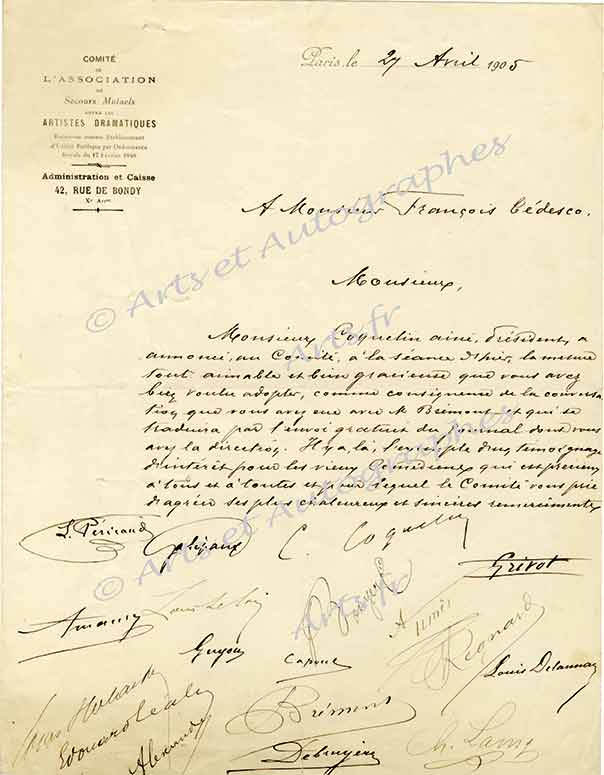 COMITÉ
DE
L'ASSOCIATION
DE
Secours Mutuels
ENTRE LES
ARTISTES DRAMATIQUES
Reconnue comme Etablissement
d'Utilité Publique par Ordonnance
Royale du 17 Février 1848
Administration et Caisse
42, RUE DE BONDY
Xe Arrt
Paris, le 27 Avril 1905
A Monsieur François Cédesco.
Monsieur,
Monsieur Coquelin ainé, Président, a
annoncé, au Comité, à la séance d'hier, la mesure
tout aimable et bien gracieuse que vous avez
bien voulu adopter, comme conséquence de la conversa
tion que vous avez eue avec M. Brémont et qui se
traduira par l'envoi gratuit du journal dont vous
avez la direction. Il y a, là, l'exemple d'un témoignage
d'intérêt pour les vieux Comédiens qui est précieux
à tous et à toutes et pour lequel le Comité vous prie
d'agréer ses plus chaleureux et sincères remerciements
L. Péricaud
Galipaux
C. Coquelin
Grivot
Amaury
Guyon
Capoul
Numès
Regnard
Louis Delaunay
Alexandre
Brémont
Debruyère
© Arts et Autographes
Arts.fr
© Arts et Autographes
Arts.fr